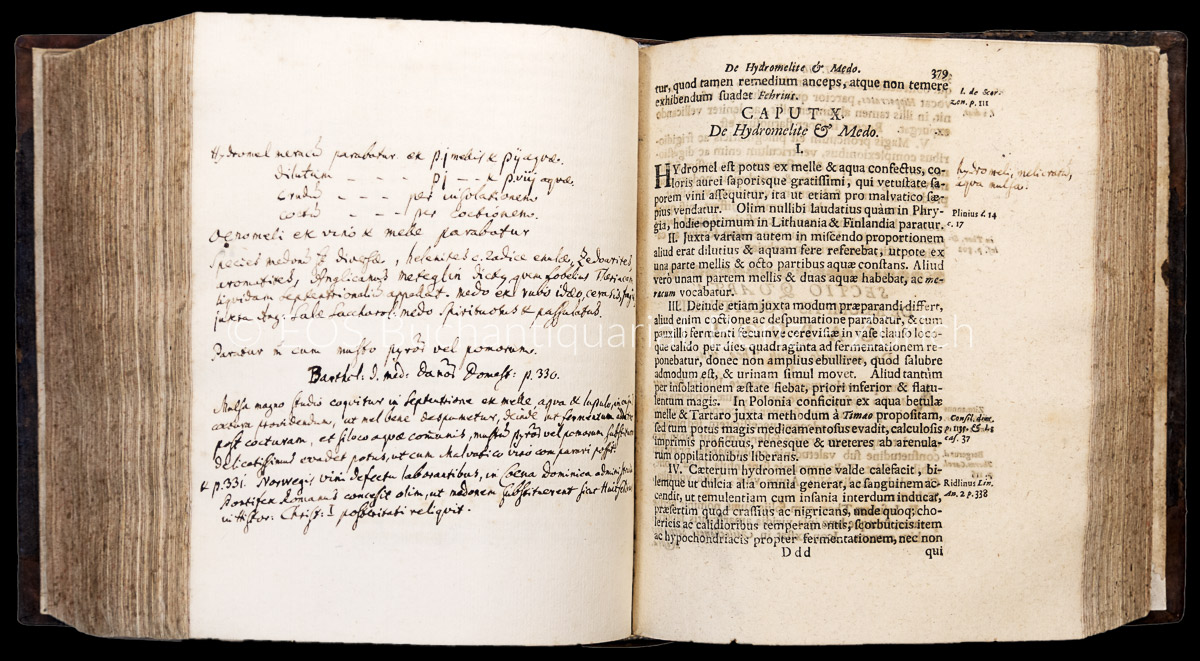 Hydromel meracū parabatur ex pj mellis & pij aquæ.
dilutum - - - pj - - & pviij aquæ.
crudū - - - per insolationem
coctū - - - per coctionem.
Oenomeli ex vino & melle parabatur
Species medonis st diversæ, helenites c. radice enulæ, Zedoarites
aromatites, Anglicanus
liquidam septentrionalis appellat. medo ex rubo idæo, cerasis,
juxta medo spirituosus & passulatus.
Paratur in cum musto pyrorū vel pomorum.
Barthol: d. med: Danor. Domest: p. 330.
Mulsa magno studio coquitur in septentrione ex melle, aqua & lupulo, in
coctura providendum, ut mel bene despumetur, deinde ut fermentum
post cocturam, et si loco aquæ communis, mustū pyrorū vel pomorum substit
delicatissimus evadet potus, ut cum Malvatico vino comparari possit.
& p. 331. Norwegis vini defectu laborantibus, in Coena Dominica
Pontifex Romanus concessit olim, ut medonem substituerent sicut
in Histor: Christ: I posteritati reliquit.
De Hydromelite & Medo. 379
tur, quod tamen remedium anceps, atque non temere
exhibendum suadet Fehrius.
l. de Scor-
zon. p. 111
CAPUT X.
De Hydromelite & Medo.
I.
HYdromel est potus ex melle & aqua confectus, co-
loris aurei saporisque gratissimi, qui vetustate sa-
porem vini assequitur, ita ut etiam pro malvatico sæ-
pius vendatur. Olim nullibi laudatius quàm in Phry-
gia, hodie optimum in Lithuania & Finlandia paratur.
hydromeli, melicratū,
aqua mulsa.
Plinius l. 14
c. 17
II. Juxta variam autem in miscendo proportionem
aliud erat dilutius & aquam fere referebat, utpote ex
una parte mellis & octo partibus aquæ constans. Aliud
vero unam partem mellis & duas aquæ habebat, ac me-
racum vocabatur.
III. Deinde etiam juxta modum præparandi differt,
aliud enim coctione ac despumatione parabatur, & cum
pauxillo fermenti fecumve cerevisiæ in vase clauso loco-
que calido per dies quadraginta ad fermentationem re-
ponebatur, donec non amplius ebulliret, quod salubre
admodum est, & urinam simul movet. Aliud tantùm
per insolationem æstate fiebat, priori inferior & flatu-
lentum magis. In Polonia conficitur ex aqua betulæ
melle & Tartaro juxta methodum à Timæo propositam,
sed tum potus magis medicamentosus evadit, calculosis
imprimis proficuus, renesque & ureteres ab arenula-
rum oppilationibus liberans.
Consil. dom.
cas. 37
IV. Cæterum hydromel omne valde calefacit, bi-
lemque ut dulcia alia omnia generat, ac sanguinem ac-
cendit, ut temulentiam cum insania interdum inducat,
præsertim quod crassius ac nigricans, unde quoq; cho-
lericis ac calidioribus temperamentis, scorbuticis item
ac hypochondriacis propter fermentationem, nec non
Ridlinus Lin.
An. 2 p. 338
Ddd qui
© EOS Buchantiquariat